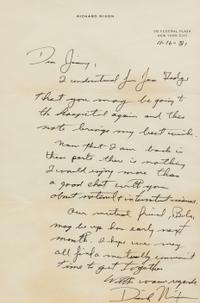 RICHARD NIXON
26 FEDERAL PLAZA
NEW YORK CITY
11-16-81
Dear Jimmy,
I understand from
that you may be going to
the hospital again and this
note brings my best wishes.
Now that I am back in
these parts there is nothing
I would enjoy more than
a good chat with you
about national & international
Our mutual friend,
may be up here early next
month. I hope we may
all find a mutually convenient
time to get together
With warm regards